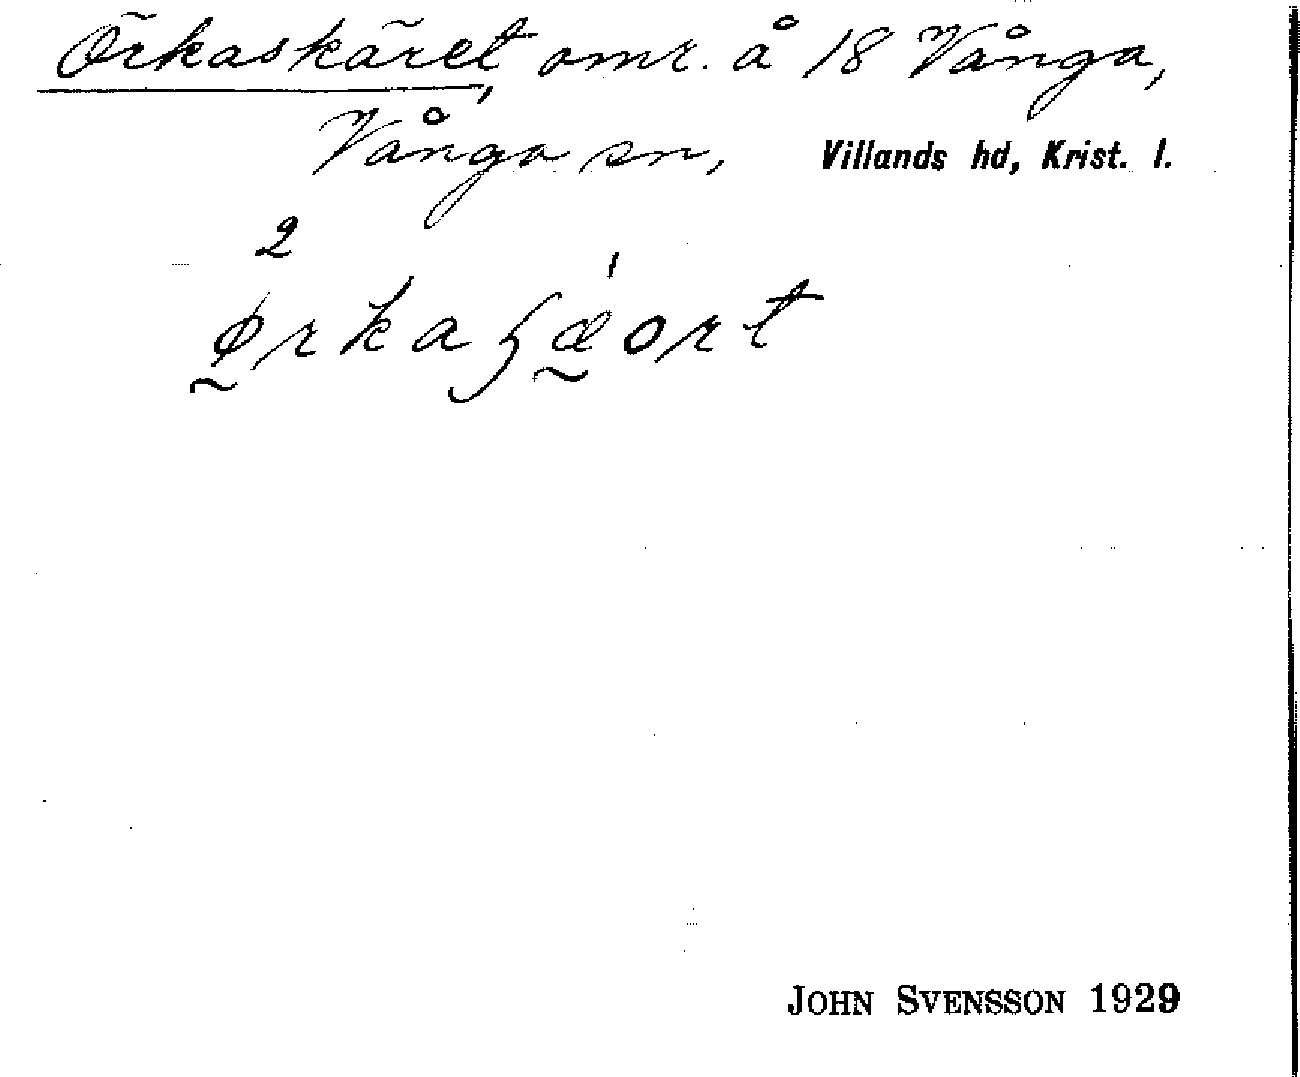 Örkaskäret, omr. å 18 Vånga,
Vånga sn, Villands hd, Krist. l.
2
ørkaʃæort
JOHN SVENSSON 1929